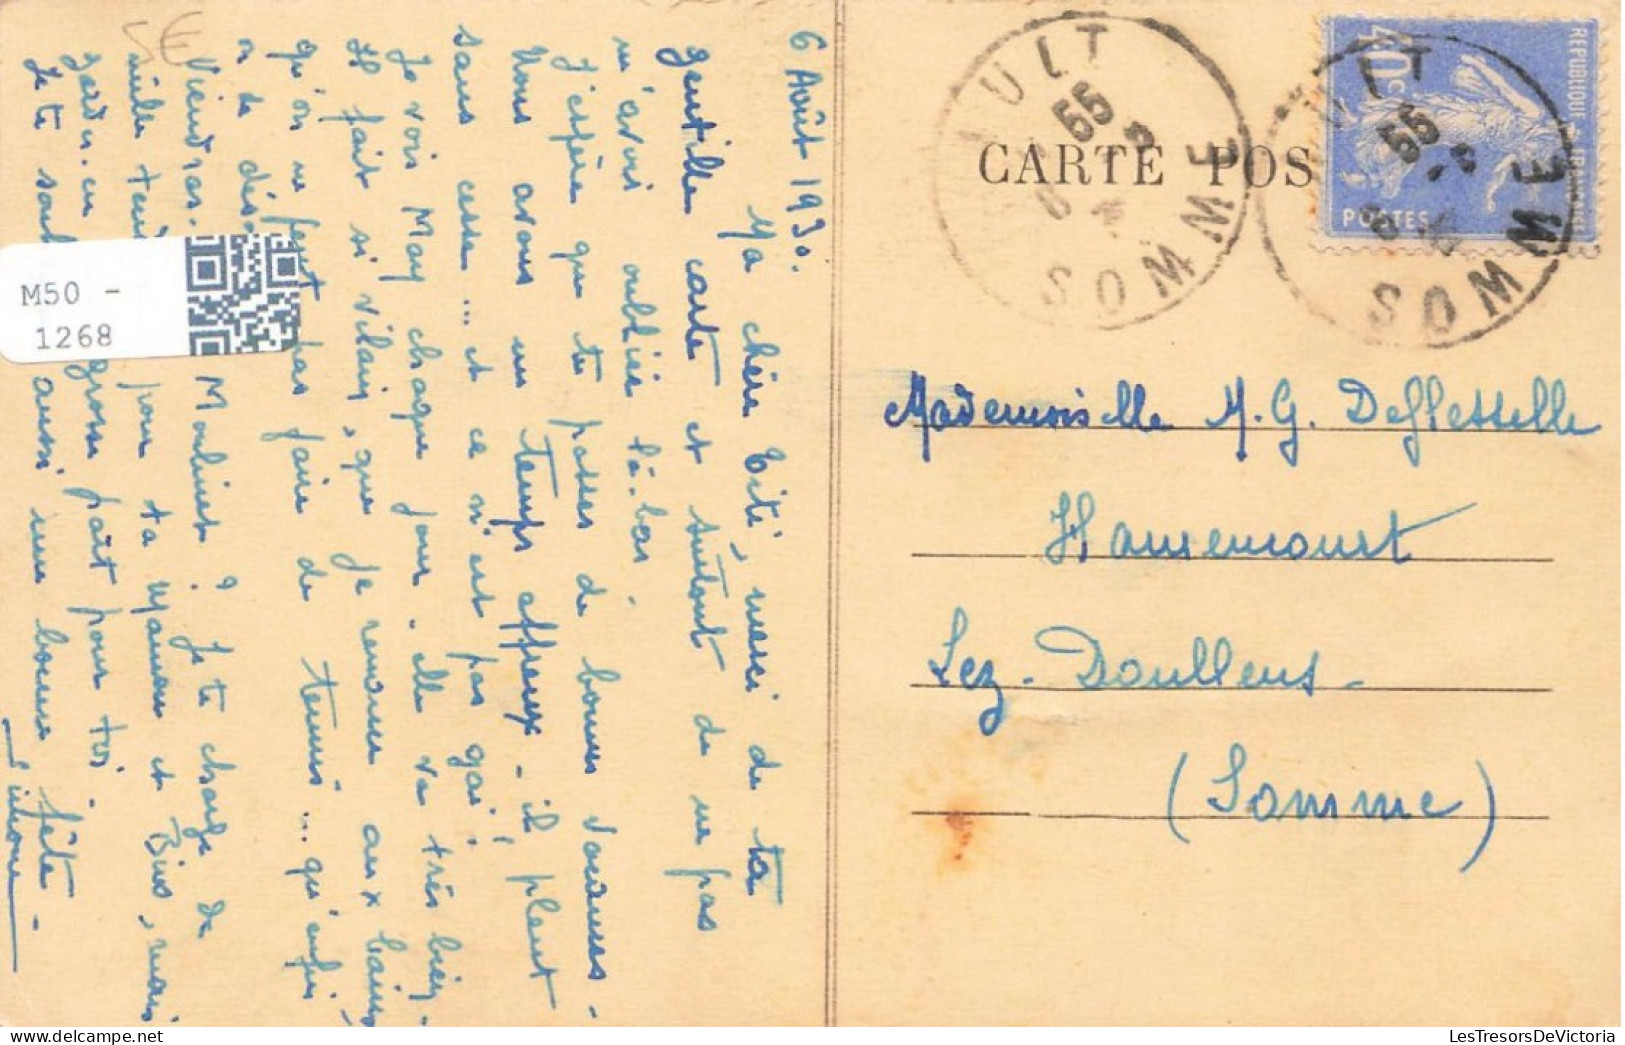 6 Août 1930.
Ma chère Tité, merci de ta
gentille carte et surtout de ne pas
m'avoir oubliée là-bas.
J'espère que tu passes de bonnes vacances -
Nous avons un temps affreux - il pleut
sans cesse... et ce n'est pas gai!
Je vois May chaque jour. elle va très bien -
Il fait si vilain, que je renonce aux bains
qu'on ne peut pas faire de tennis... qu'enfin
on se déso
Viendras. Moulinet? Je te charge de
mille ten pour ta maman et Bino, mais
gardes-en grosse part pour toi.
Je te souh aussi une bonne fête -
Simone
M50 -
1268
CARTE POS
AULT
SOMME
AULT
SOMME
REPUBLIQUE FRANÇAISE
40c
POSTES
Mademoiselle M. G. Deflesselle
Hamencourt
Lez-Doullens -
(Somme)
LesTresorsDeVictoria.com